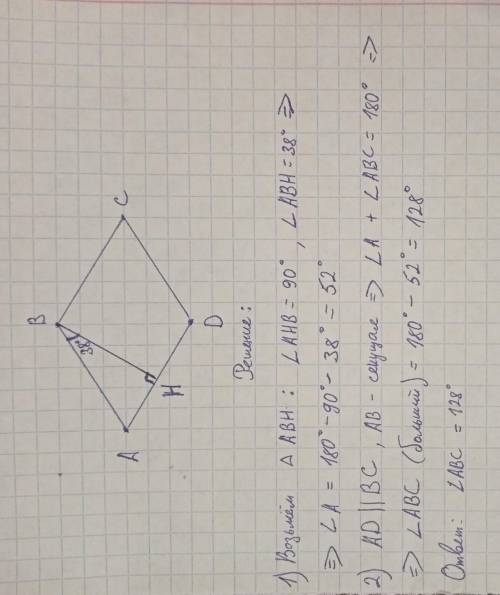 B
38°
A
H
C
D
Решение:
1) Возьмём △ ABH : ∠AHB = 90° , ∠ABH = 38° =>
=> ∠A = 180° - 90° - 38° = 52°
2) AD || BC , AB - секущая => ∠A + ∠ABC = 180° =>
=> ∠ABC (больший) = 180° - 52° = 128°
Ответ: ∠ABC = 128°